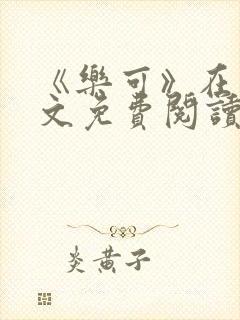 《樂可》在
文免費閱讀
炎黃子